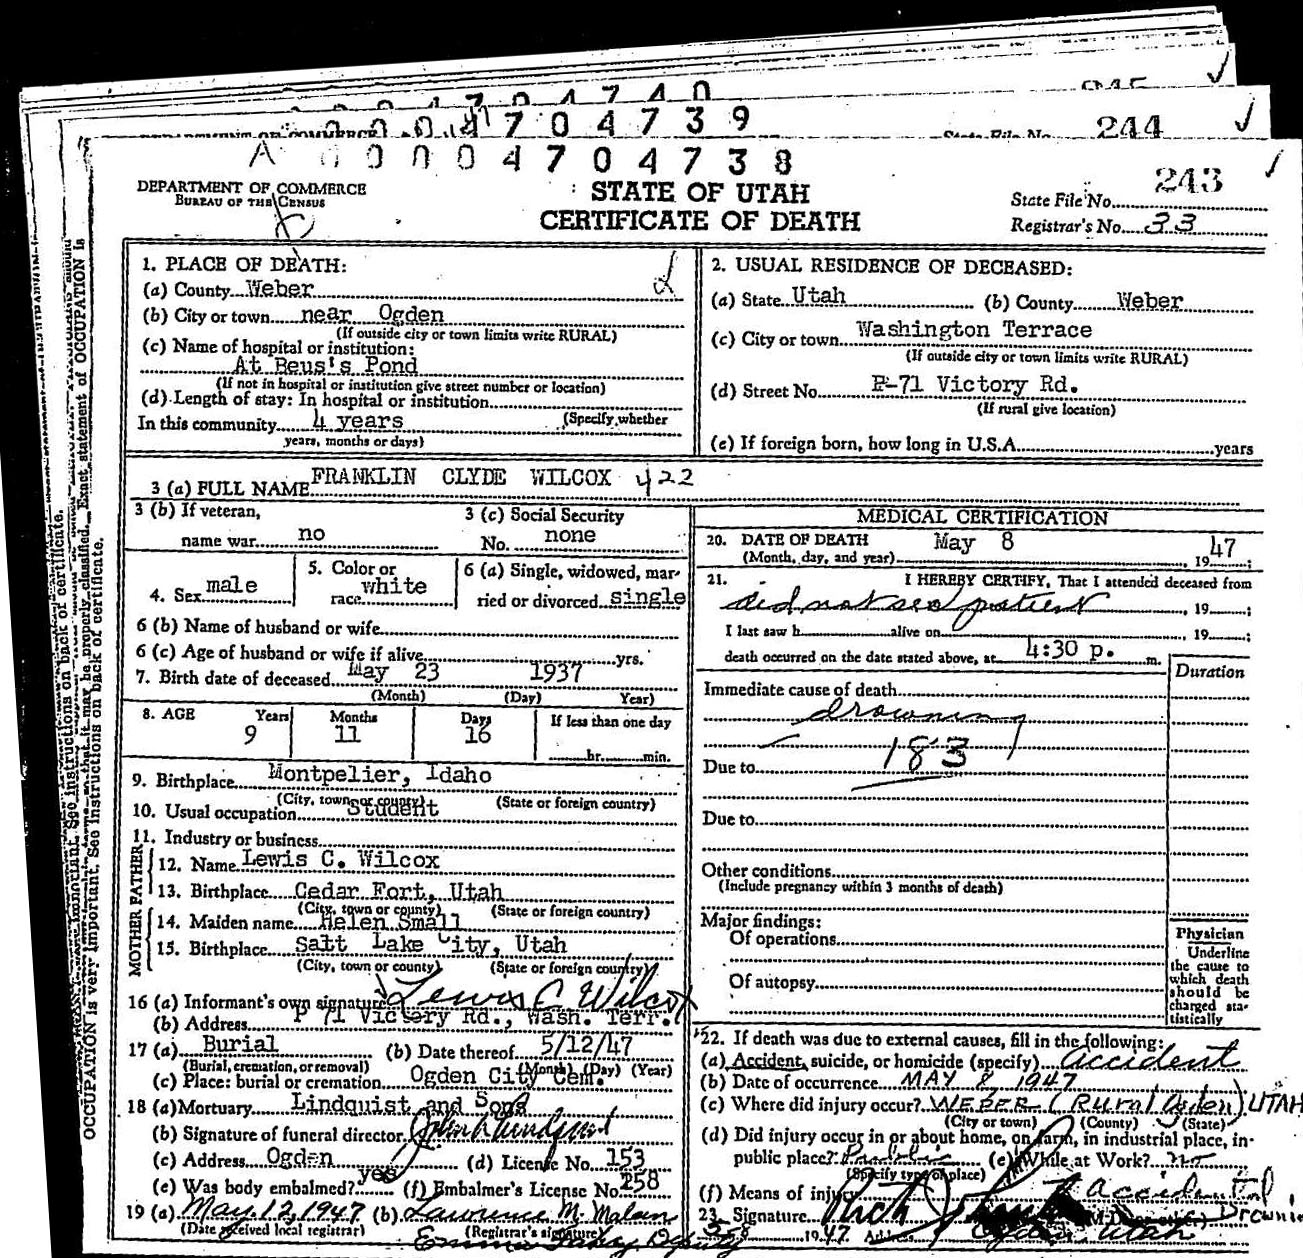 0 0 0 4 7 0 4 7 4 0
245
0 0 0 4 7 0 4 7 3 9
State File No. 244
A 0 0 0 0 4 7 0 4 7 3 8
DEPARTMENT OF COMMERCE
BUREAU OF THE CENSUS
STATE OF UTAH
CERTIFICATE OF DEATH
State File No. 243
Registrar's No. 33
1. PLACE OF DEATH:
(a) County Weber
(b) City or town near Ogden
(If outside city or town limits write RURAL)
(c) Name of hospital or institution:
At Beus's Pond
(If not in hospital or institution give street number or location)
(d) Length of stay: In hospital or institution
In this community 4 years (Specify whether
years, months or days)
2. USUAL RESIDENCE OF DECEASED:
(a) State Utah (b) County Weber
(c) City or town Washington Terrace
(If outside city or town limits write RURAL)
(d) Street No. P-71 Victory Rd.
(If rural give location)
(e) If foreign born, how long in U.S.A. years
3 (a) FULL NAME FRANKLIN CLYDE WILCOX 422
3 (b) If veteran,
name war no
3 (c) Social Security
No. none
4. Sex male
5. Color or
race white
6 (a) Single, widowed, mar-
ried or divorced single
6 (b) Name of husband or wife
6 (c) Age of husband or wife if alive yrs.
7. Birth date of deceased May 23 1937
(Month) (Day) Year)
8. AGE Years Months Days If less than one day
9 11 16 hr. min.
9. Birthplace Montpelier, Idaho
(City, town or county) (State or foreign country)
10. Usual occupation Student
11. Industry or business
FATHER
12. Name Lewis C. Wilcox
13. Birthplace Cedar Fort, Utah
(City, town or county) (State or foreign country)
MOTHER
14. Maiden name Helen Small
15. Birthplace Salt Lake City, Utah
(City, town or county) (State or foreign country)
16 (a) Informant's own signature Lewis C Wilcox
(b) Address P 71 Victory Rd., Wash. Terr.
17 (a) Burial (b) Date thereof 5/12/47
(Burial, cremation, or removal) (Month) (Day) (Year)
(c) Place: burial or cremation Ogden City Cem.
18 (a) Mortuary Lindquist and Sons
(b) Signature of funeral director
(c) Address Ogden (d) License No. 153
(e) Was body embalmed? yes (f) Embalmer's License No. 258
19 (a) May 12, 1947 (b) Lawrence M. Malan
(Date received local registrar) (Registrar's signature)
Deputy
MEDICAL CERTIFICATION
20. DATE OF DEATH May 8
(Month, day, and year) 1947;
21. I HEREBY CERTIFY, That I attended deceased from
did not see patient, 19 ;
I last saw h alive on , 19 ;
death occurred on the date stated above, at 4:30 p. m.
Duration
Immediate cause of death
drowning
183
Due to
Due to
Other conditions
(Include pregnancy within 3 months of death)
Major findings:
Of operations
Of autopsy
Physician
Underline
the cause to
which death
should be
charged sta-
tistically
22. If death was due to external causes, fill in the following:
(a) Accident, suicide, or homicide (specify) accident
(b) Date of occurrence MAY 8, 1947
(c) Where did injury occur? WEBER (Rural Ogden) UTAH
(City or town) (County) (State)
(d) Did injury occur in or about home, on farm, in industrial place, in-
public place? Public (e) While at Work? no
(Specify type of place)
(f) Means of injury accidental
Drowning
23. Signature
1947 Address Ogden Utah
OCCUPATION is very important. See instructions on back of certificate.
Exact statement of OCCUPATION is